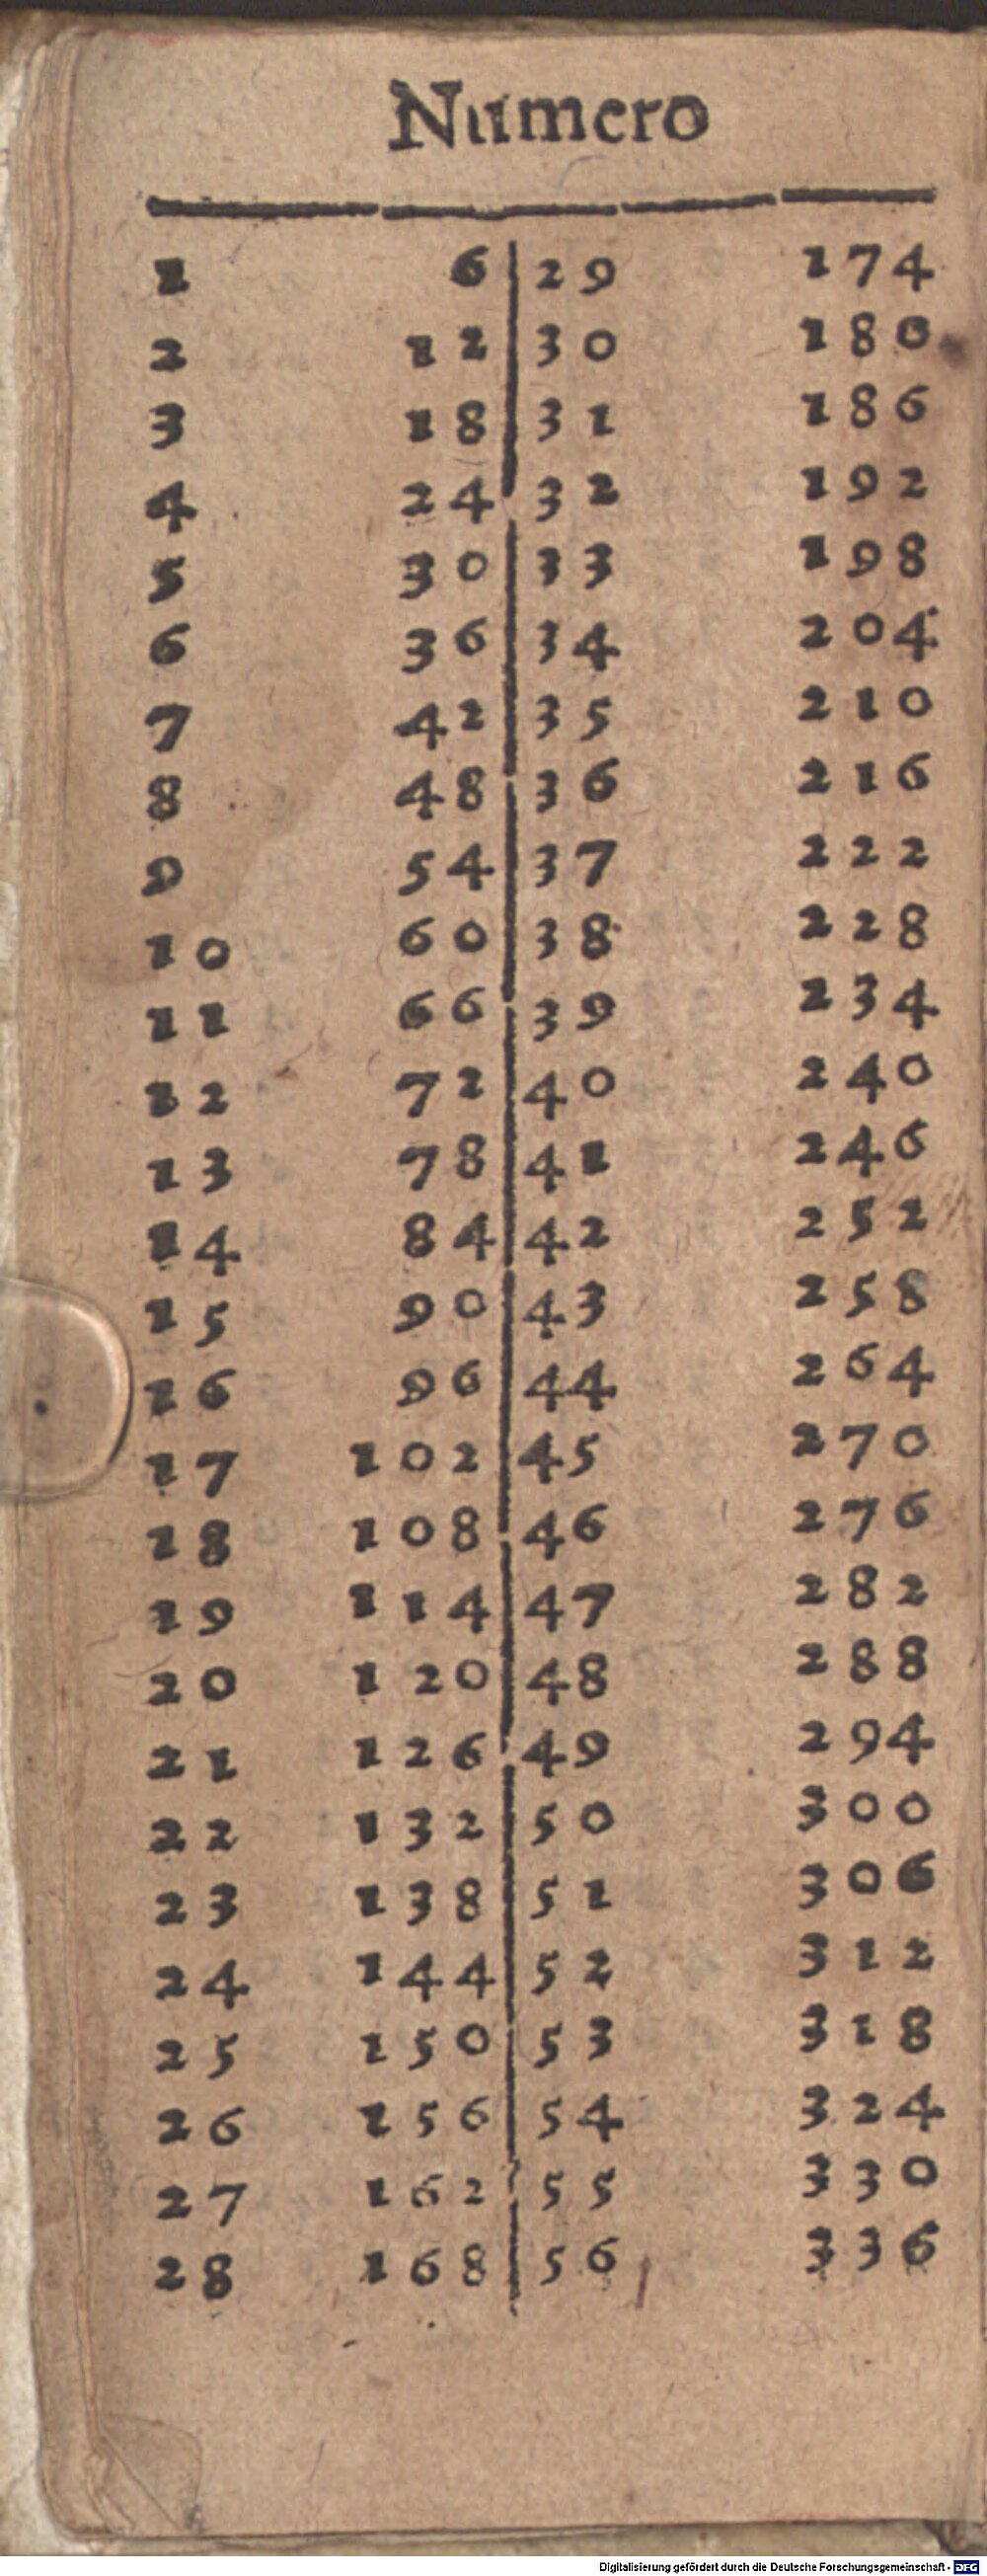 Numero
1 6 29 174
2 12 30 180
3 18 31 186
4 24 32 192
5 30 33 198
6 36 34 204
7 42 35 210
8 48 36 216
9 54 37 222
10 60 38 228
11 66 39 234
12 72 40 240
13 78 41 246
14 84 42 252
15 90 43 258
16 96 44 264
17 102 45 270
18 108 46 276
19 114 47 282
20 120 48 288
21 126 49 294
22 132 50 300
23 138 51 306
24 144 52 312
25 150 53 318
26 156 54 324
27 162 55 330
28 168 56 336
Digitalisierung gefördert durch die Deutsche Forschungsgemeinschaft - DFG